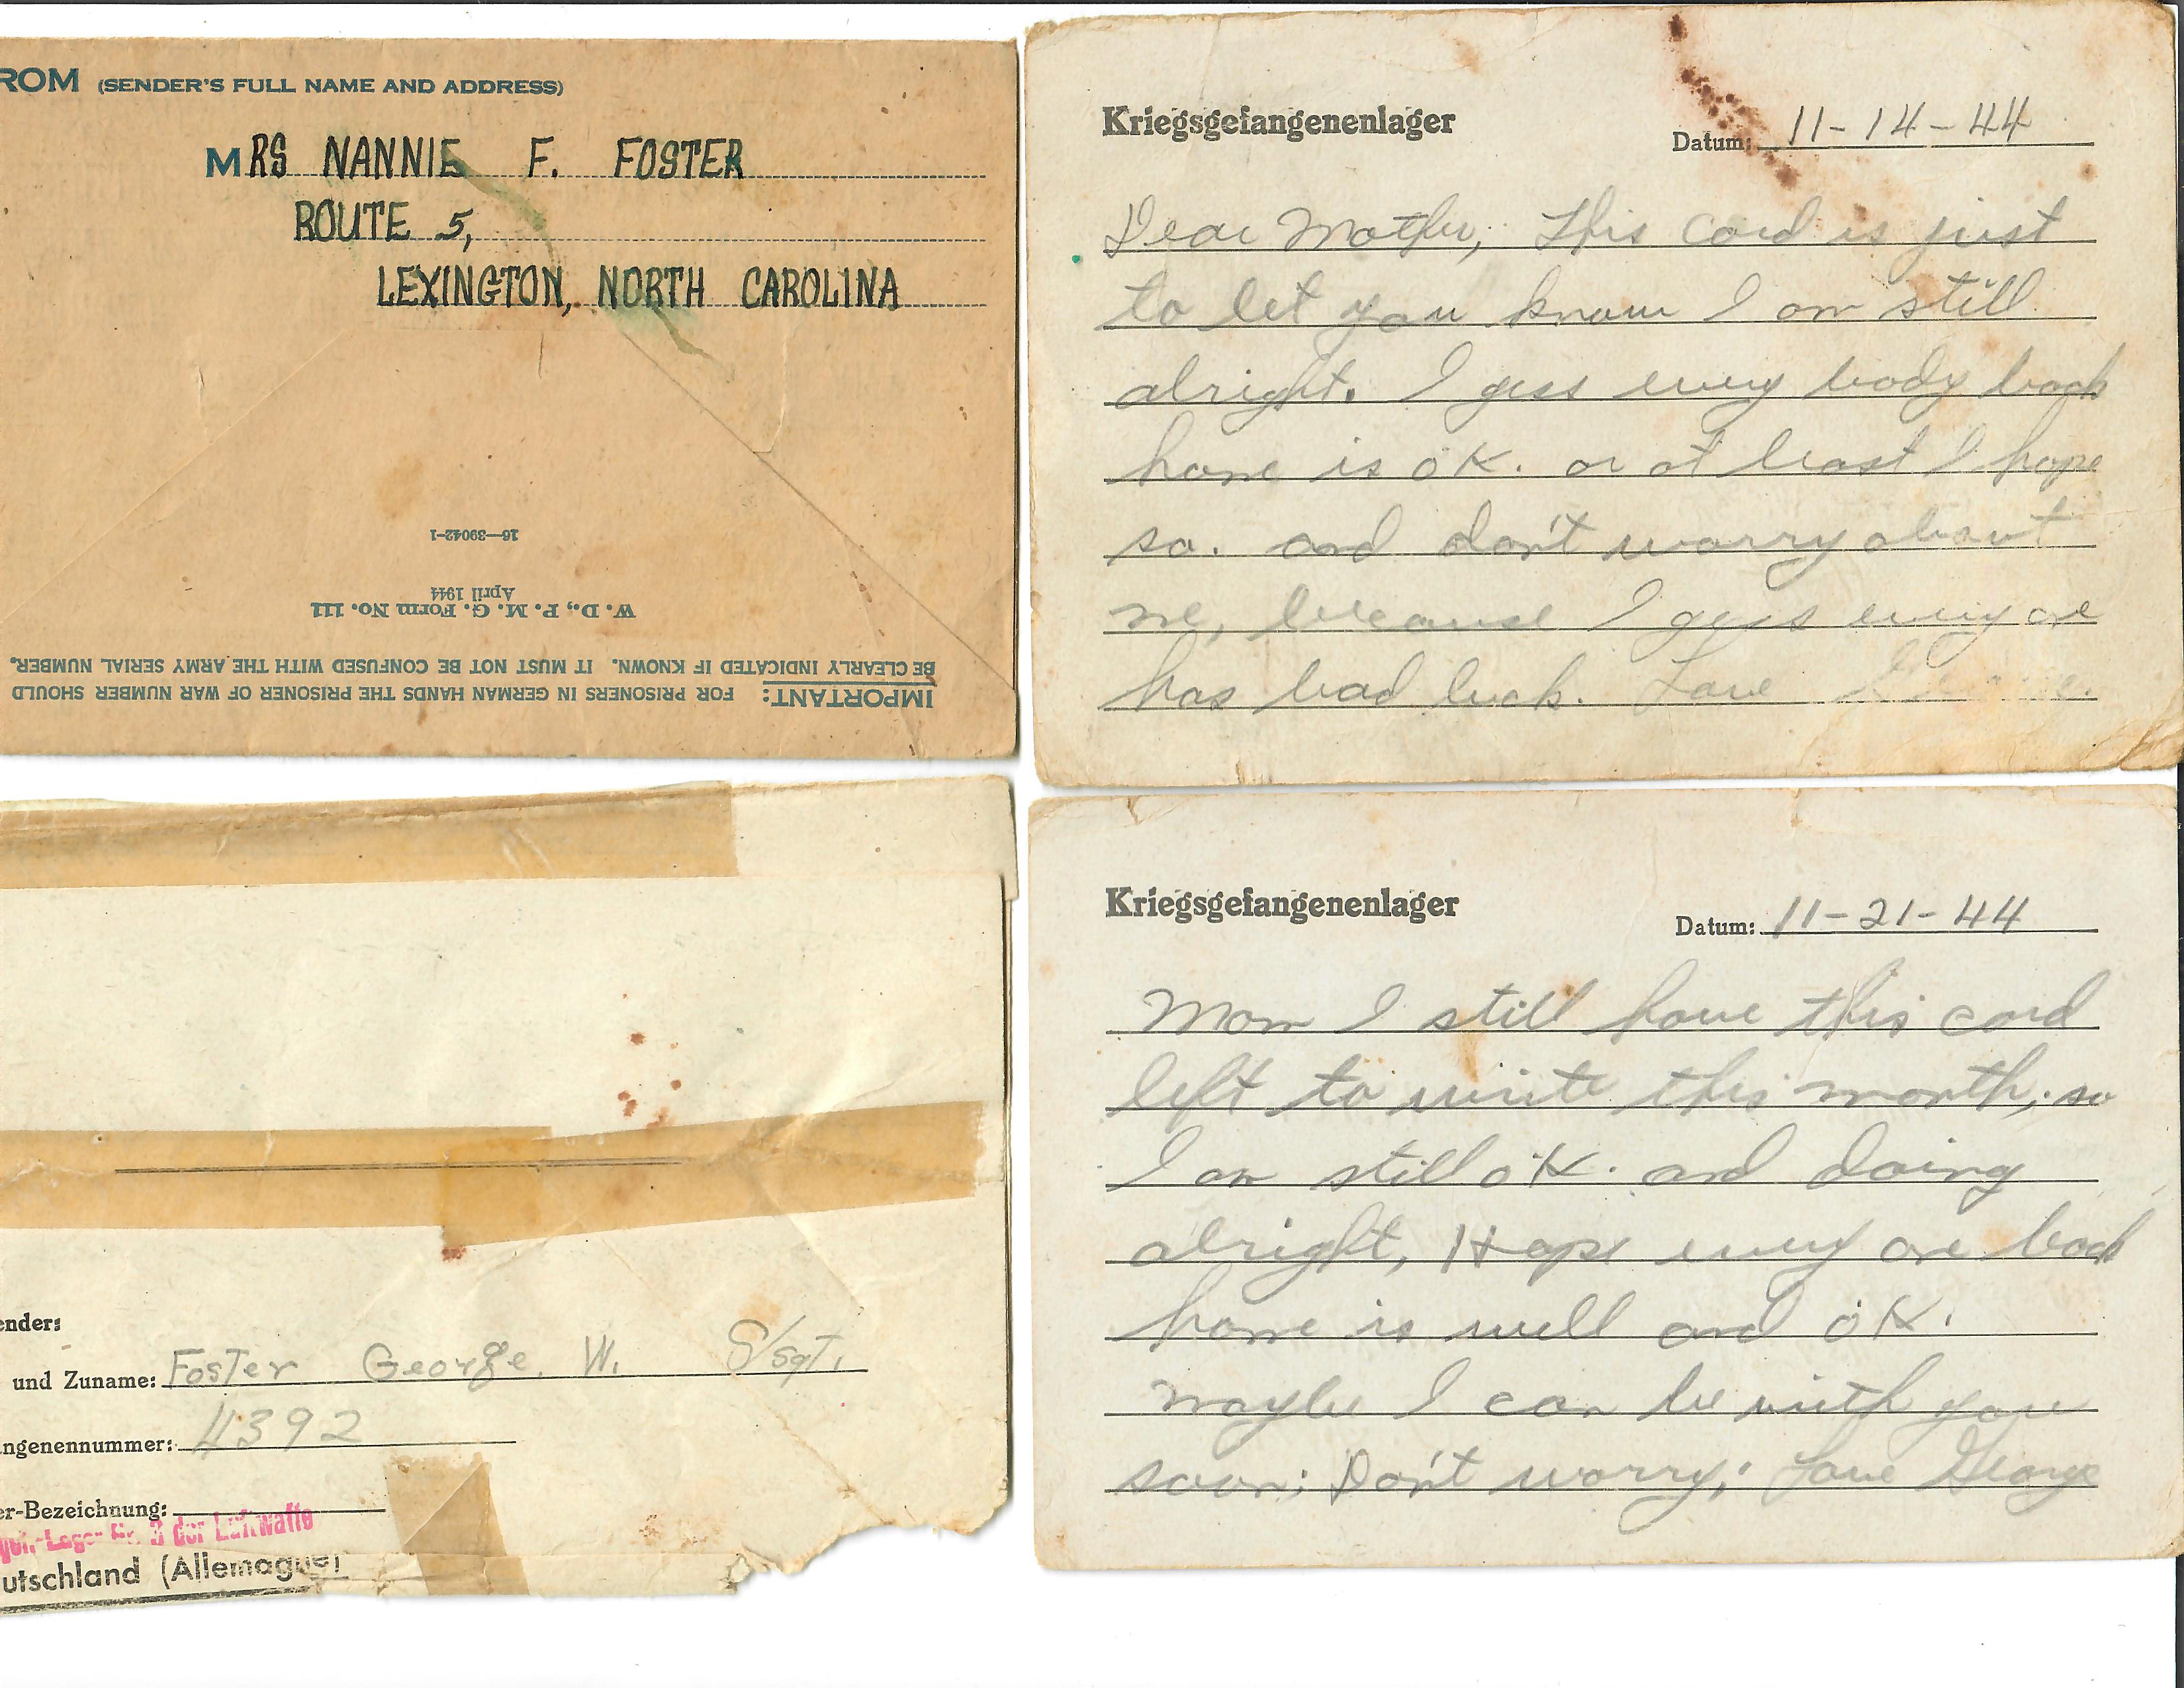 ROM (SENDER'S FULL NAME AND ADDRESS)
MRS NANNIE F. FOSTER
ROUTE 5,
LEXINGTON, NORTH CAROLINA
16—39042-1
W. D., P. M. G. Form No. 111
April 1944
IMPORTANT: FOR PRISONERS IN GERMAN HANDS THE PRISONER OF WAR NUMBER SHOULD
BE CLEARLY INDICATED IF KNOWN. IT MUST NOT BE CONFUSED WITH THE ARMY SERIAL NUMBER.
Kriegsgefangenenlager
Datum: 11-14-44
Dear Mother, This card is just
to let you know I am still
alright. I gess every body back
home is OK. or at least I hope
so. and don't worry about
me, because I gess every one
has bad luck. Love George.
ender:
und Zuname: Foster George. W. S/sgt.
angenennummer: 4392
er-Bezeichnung:
Lager Nr. 3 der Luftwaffe
utschland (Allemagne)
Kriegsgefangenenlager
Datum: 11-21-44
Mom I still have this card
left to write this month, so
I am still OK. and doing
alright, Hope every one back
home is well and OK.
maybe I can be with you
soon; Don't worry; Love George